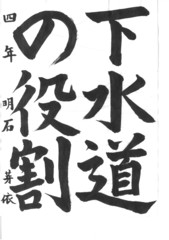 下水道
の役割
四年 明石 芽依